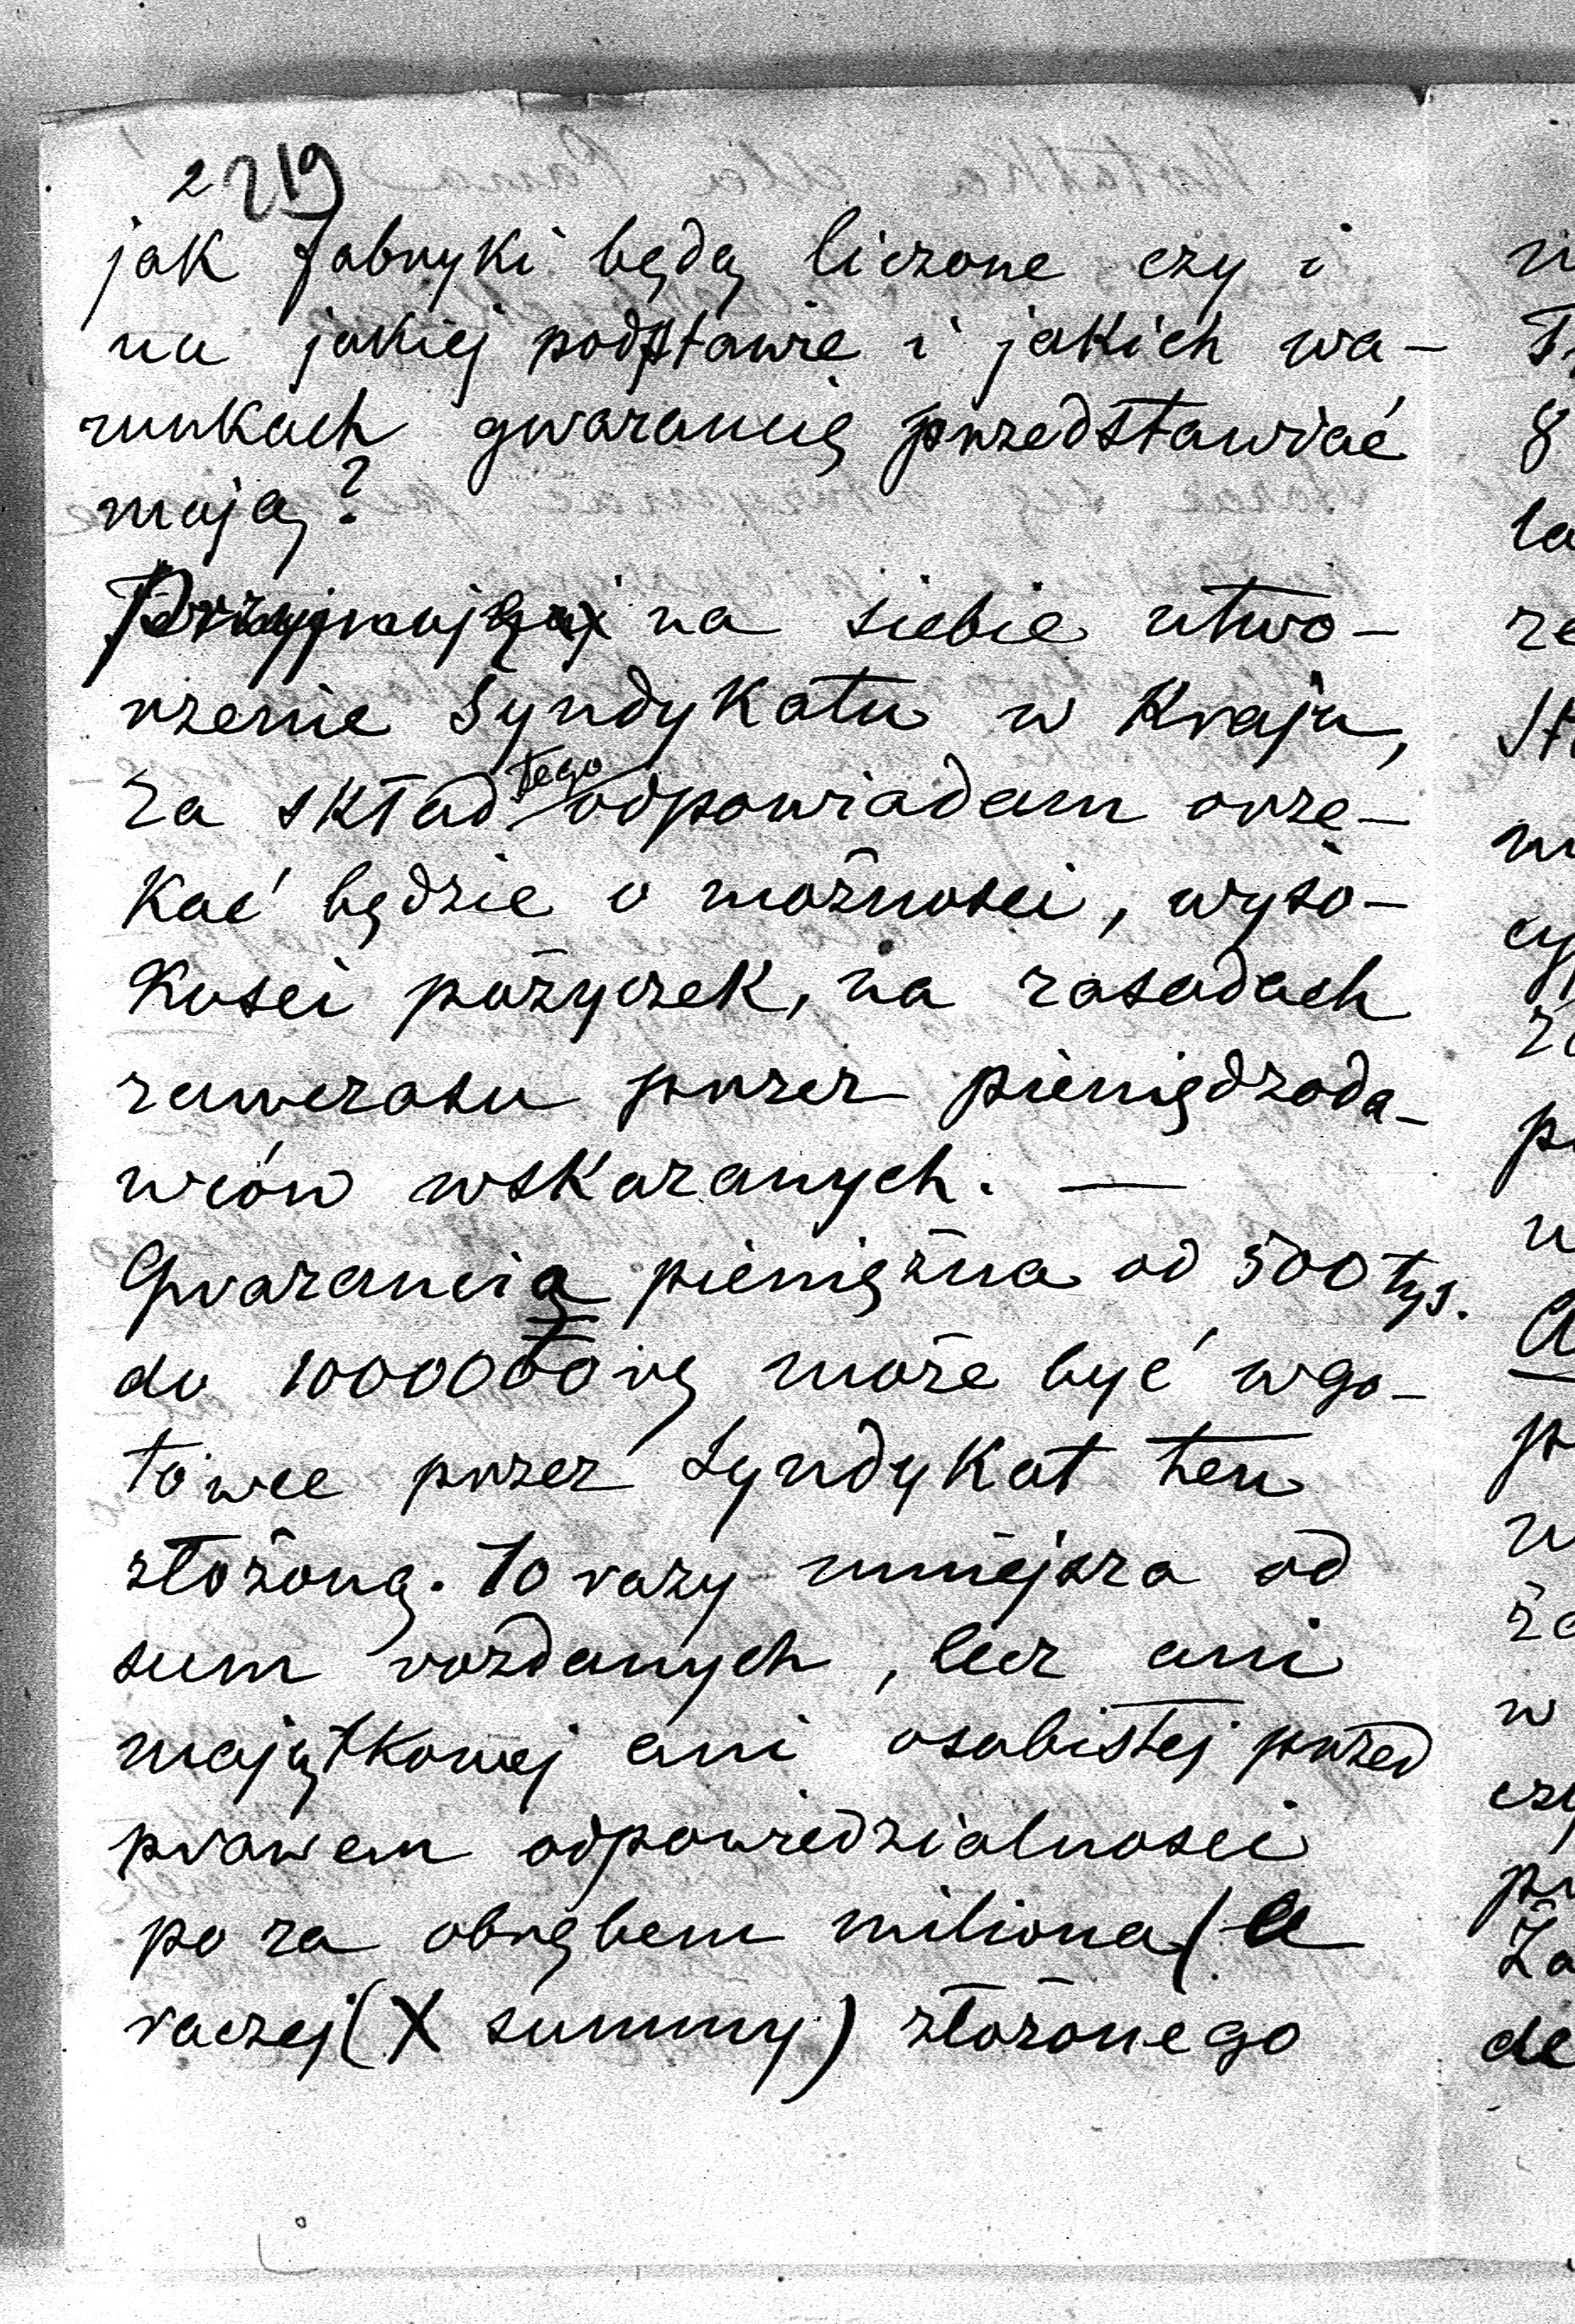 2 219
jak fabryki będą liczone czy i
na jakiej podstawie i jakich wa-
runkach gwarancię przedstawiać
mają?
na siebie utwo-
rzenie Syndykatu w Kraju,
za skład tego odpowiadam orze-
kać będzie o możności, wyso-
kości pożyczek, na zasadach
zawczasu przez pieniędzoda-
wców wskazanych. —
Gwarancią pieniężna od 500 tys.
do 1000000 rs może być w go-
tówce przez Syndykat ten
złożoną. 10 razy mniejsza od
sum rozdanych, lecz ani
majątkowej ani osobistej przed
prawem odpowiedzialności
po za obrębem miliona / a
raczej (X summy) złożonego